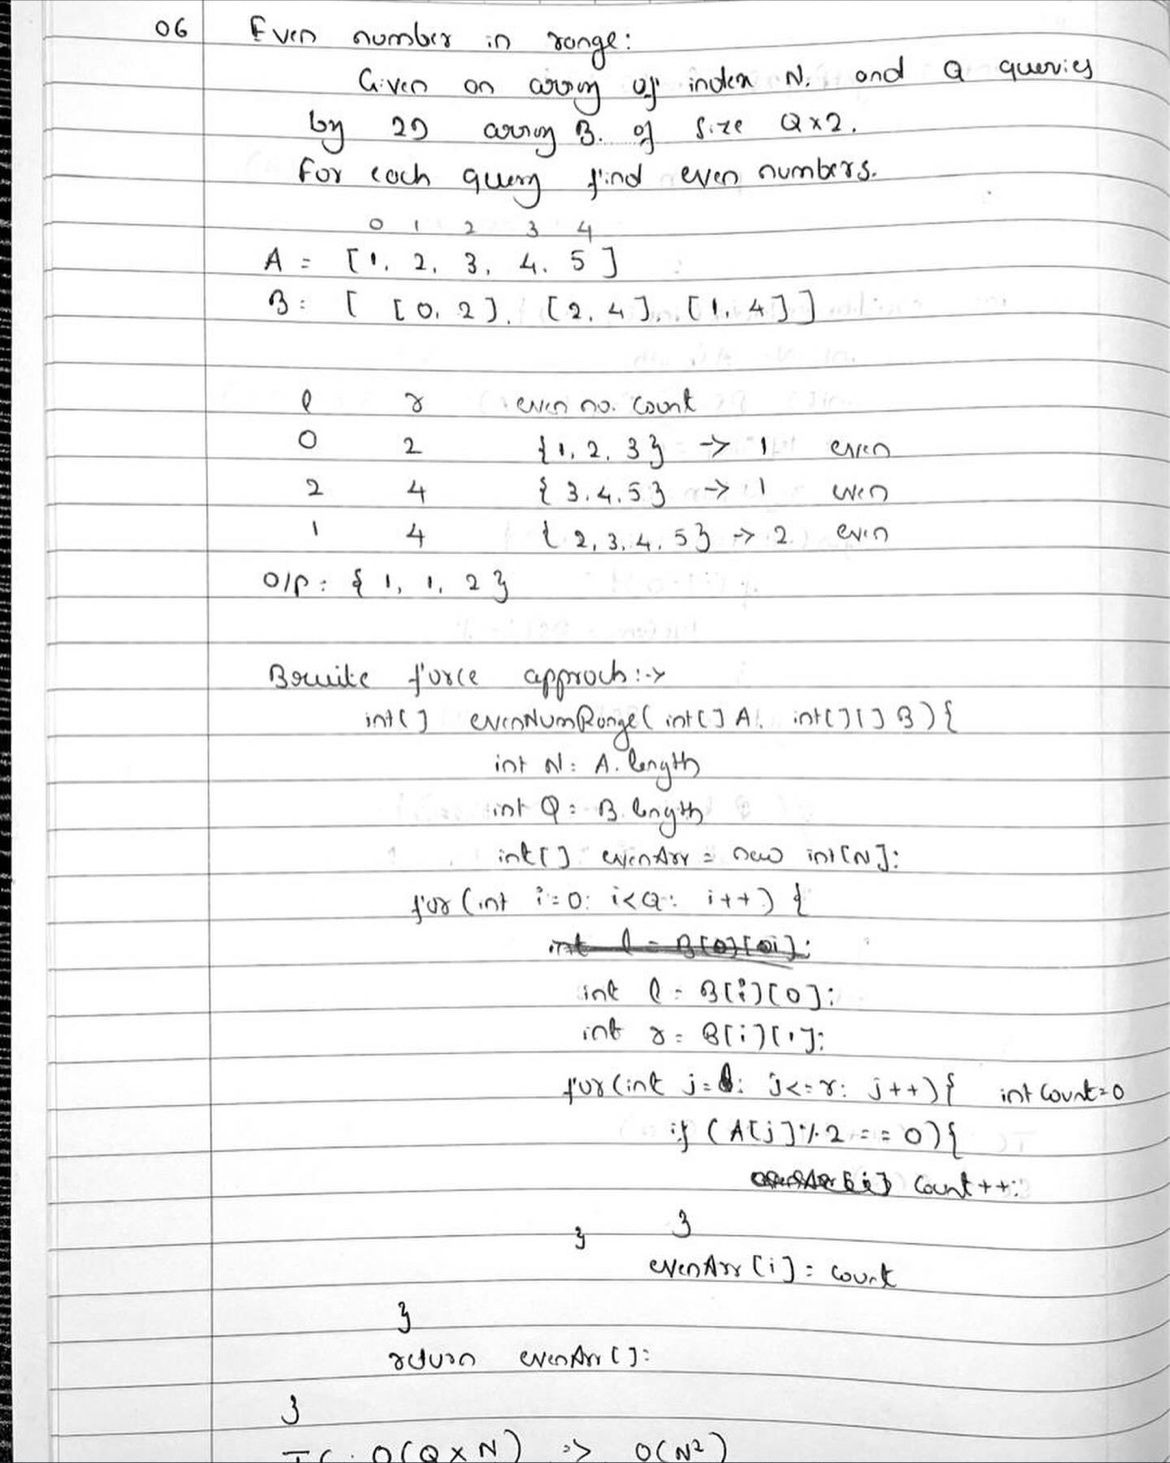 06 Even number in range:
Given an array of index N. and Q queries
by 2D array B. of size Q×2.
For each query find even numbers.
0 1 2 3 4
A = [1, 2, 3, 4, 5]
B = [ [0, 2], [2, 4], [1, 4] ]
l r even no. count
0 2 {1, 2, 3} -> 1 even
2 4 {3, 4, 5} -> 1 even
1 4 {2, 3, 4, 5} -> 2 even
O/P: { 1, 1, 2 }
Bruite force approch :->
int[] evenNumRange( int[] A, int[][] B) {
int N = A.length
int Q = B.length
int[] evenArr = new int[N];
for (int i=0; i<Q; i++) {
int l = B[i][0];
int r = B[i][1];
for (int j=l; j<=r; j++) { int count=0
if (A[j] % 2 == 0) {
count++;
}
}
evenArr[i] = count
}
return evenArr[];
}
TC: O(Q×N) => O(N²)